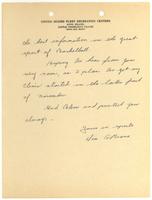 UNITED STATES FLEET RECREATION CENTERS
the best information in the great
sport of Basketball.
Hoping to hear from you
very soon, as I plan to get my
clinic started in the latter part
of November.
God Bless and protect you
always.
Yours in sports